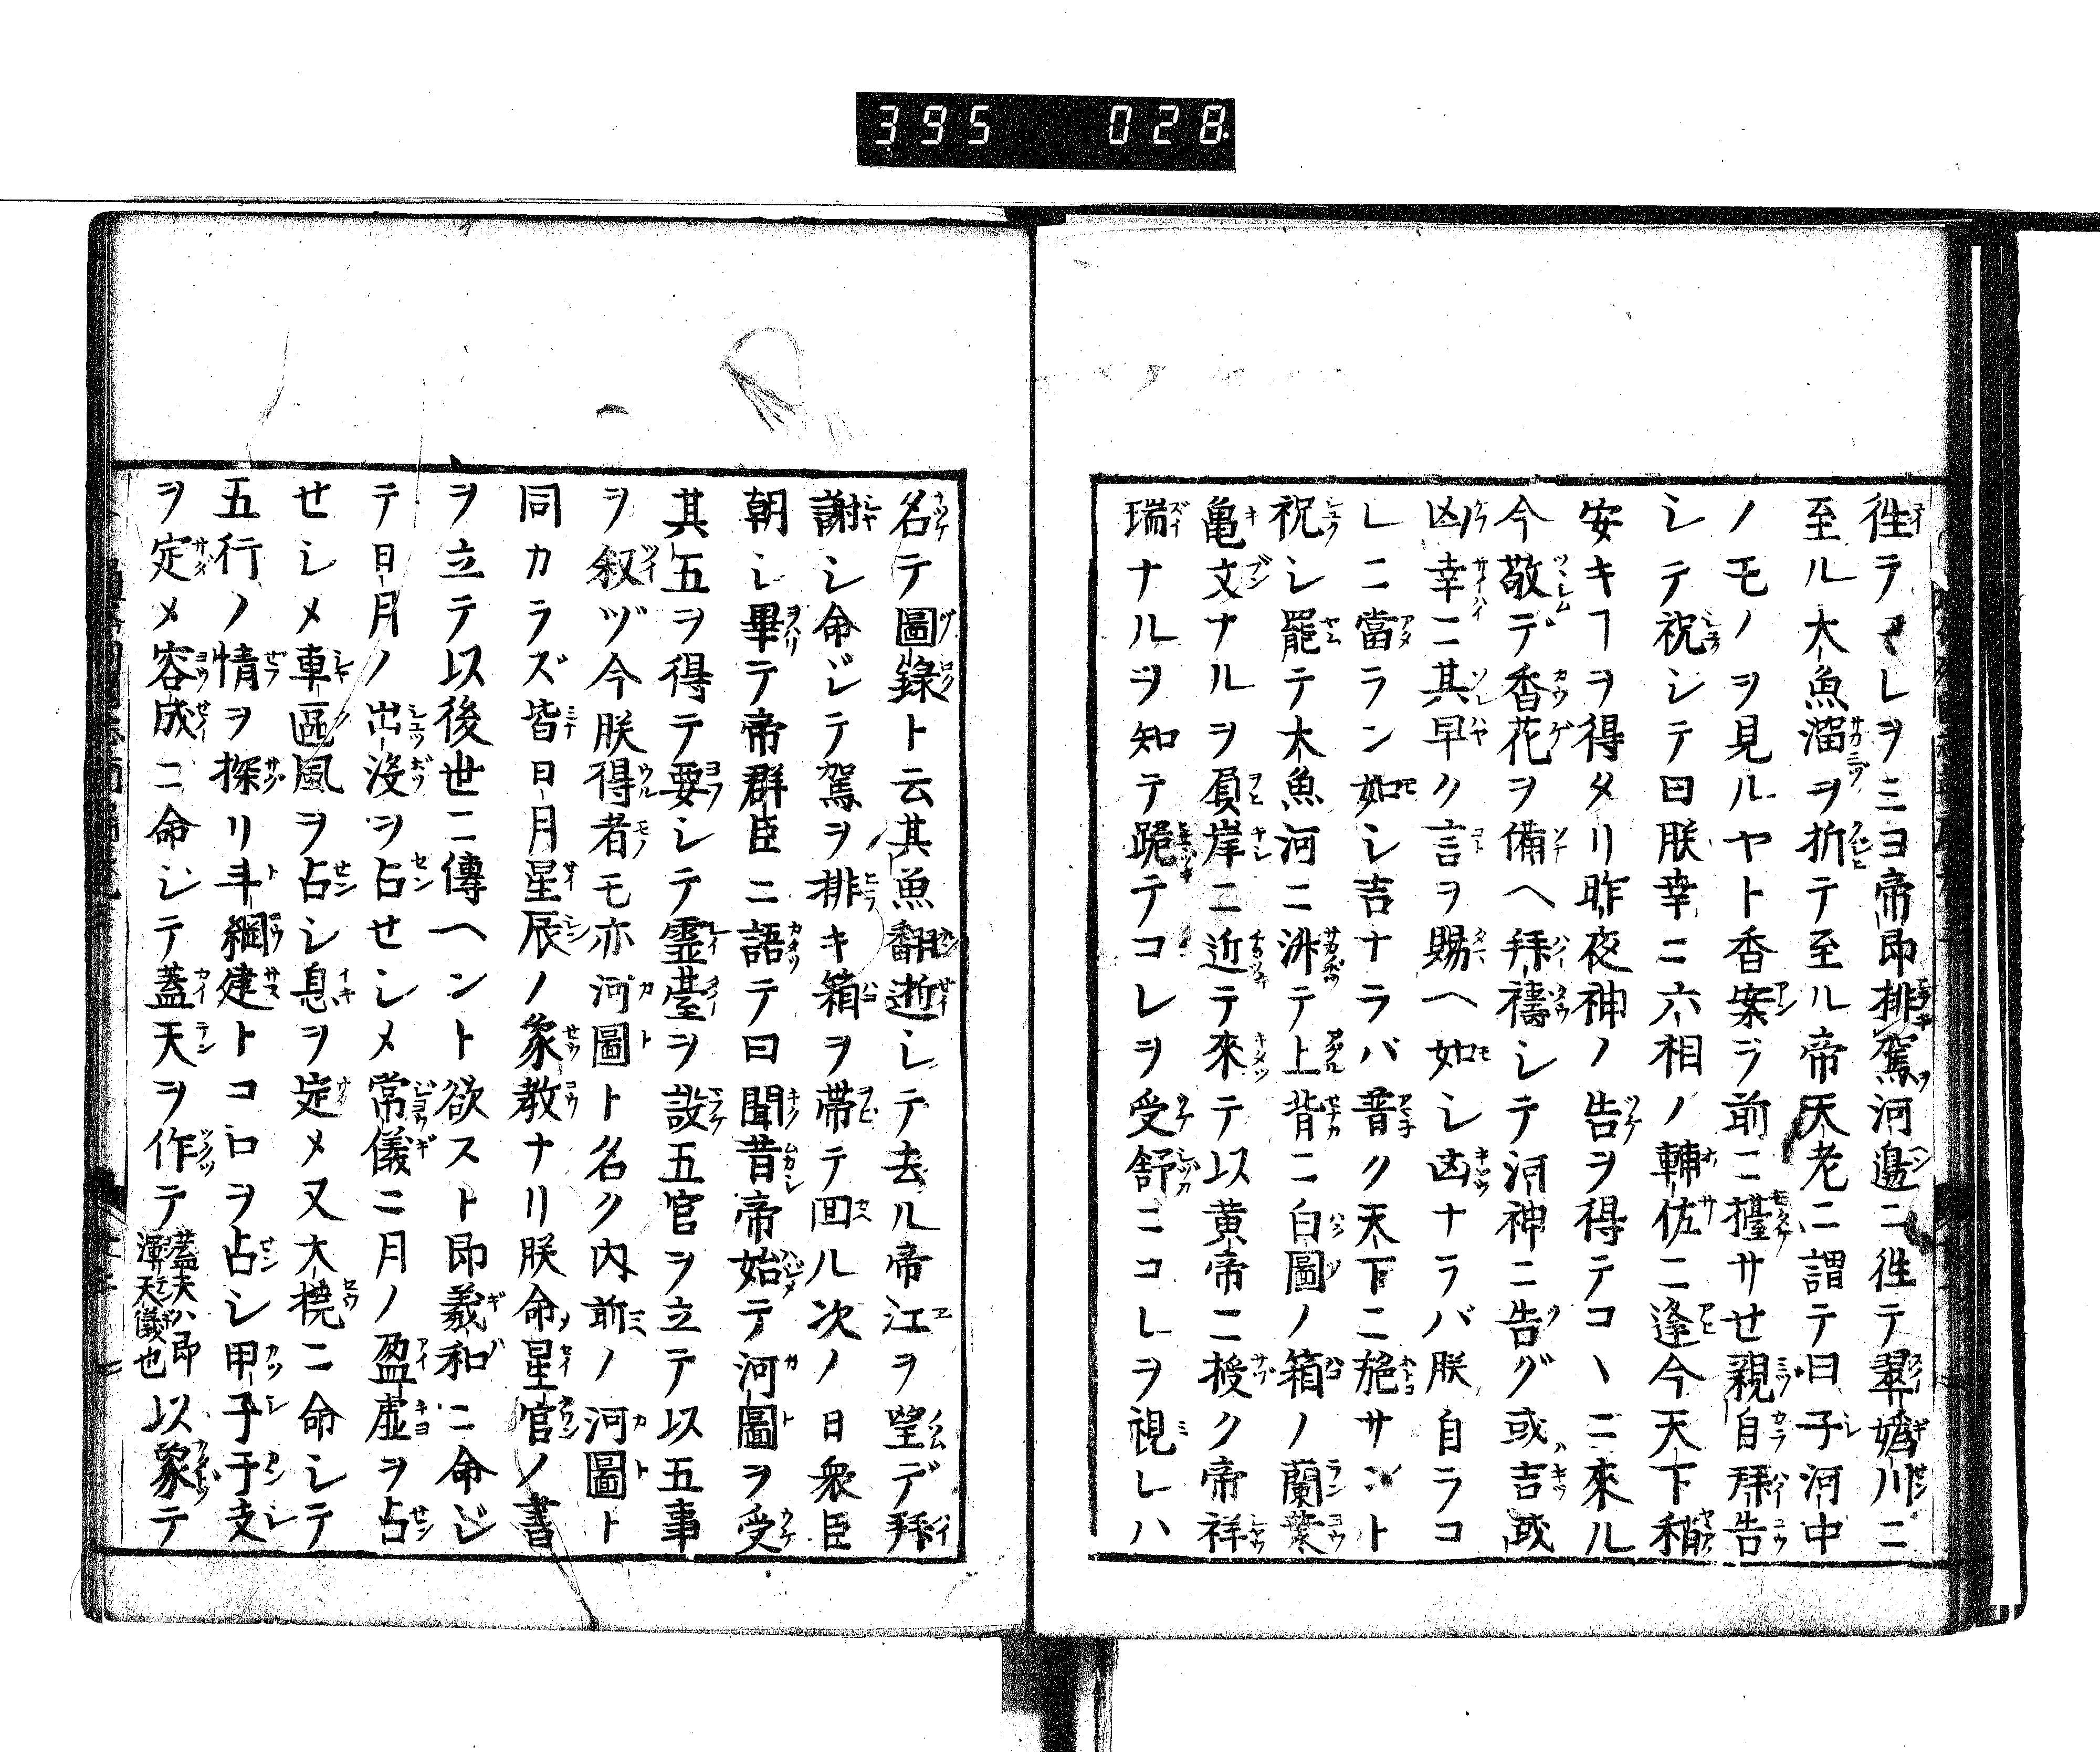 395 028
徃テコレヲミヨ帝即排駕河邊ニ徃テ翠嬀川ニ
至ル大魚溜ヲ折テ至ル帝天老ニ謂テ曰子河中
ノモノヲ見ルヤト香案ヲ前ニ擡サせ親自拜告
シテ祝シテ曰朕幸ニ六相ノ輔佐ニ逢今天下稍
安キヿヲ得タリ昨夜神ノ告ヲ得テコヽニ來ル
今敬デ香花ヲ備ヘ拜禱シテ河神ニ告グ或吉或
凶幸ニ其早ク言ヲ賜ヘ如シ凶ナラバ朕自ラコ
レニ當ラン如シ吉ナラバ普ク天下ニ施サント
祝シ罷テ大魚河ニ泝テ上背ニ白圖ノ箱ノ蘭葉
亀文ナルヲ負岸ニ近テ來テ以黄帝ニ授ク帝祥
瑞ナルヲ知テ跪テコレヲ受舒ニコレヲ視レハ
名テ圖錄ト云其魚翻逝シテ去ル帝江ヲ望デ拜
謝シ命ジテ駕ヲ排キ箱ヲ帶テ回ル次ノ日衆臣
朝シ畢テ帝群臣ニ語テ曰聞昔帝始テ河圖ヲ受
其五ヲ得テ要シテ霊臺ヲ設五官ヲ立テ以五事
ヲ叙ヅ今朕得者モ亦河圖ト名ク内前ノ河圖ト
同カラズ皆日月星辰ノ象教ナリ朕命星官ノ書
ヲ立テ以後世ニ傳ヘント欲スト即羲和ニ命ジ
テ日月ノ出没ヲ占せシメ常儀ニ月ノ盈虚ヲ占
せシメ車區風ヲ占シ息ヲ定メ又大撓ニ命シテ
五行ノ情ヲ探リ斗綱建トコロヲ占シ甲子干支
ヲ定メ容成ニ命シテ蓋天ヲ作テ蓋天ハ即渾天儀也以象テ